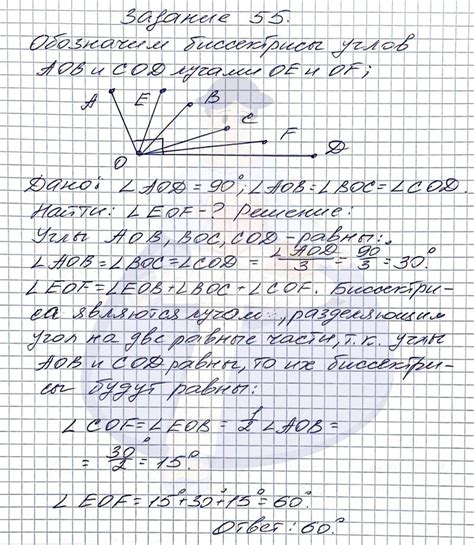 Задание 55.
Обозначим биссектрисы углов
AOB и COD лучами OE и OF;
A E B C F D O
Дано: ∠AOD = 90°; ∠AOB = ∠BOC = ∠COD.
Найти: ∠EOF - ? Решение:
Углы AOB, BOC, COD - равны:
∠AOB = ∠BOC = ∠COD = ∠AOD/3 = 90/3 = 30°.
∠EOF = ∠EOB + ∠BOC + ∠COF. Биссектри-
са являются лучам, разделяющим
угол на две равные части, т.к. углы
AOB и COD равны, то их биссектри-
сы будут равны:
∠COF = ∠EOB = 1/2 ∠AOB =
= 30°/2 = 15°.
∠EOF = 15° + 30° + 15° = 60°.
Ответ: 60°.